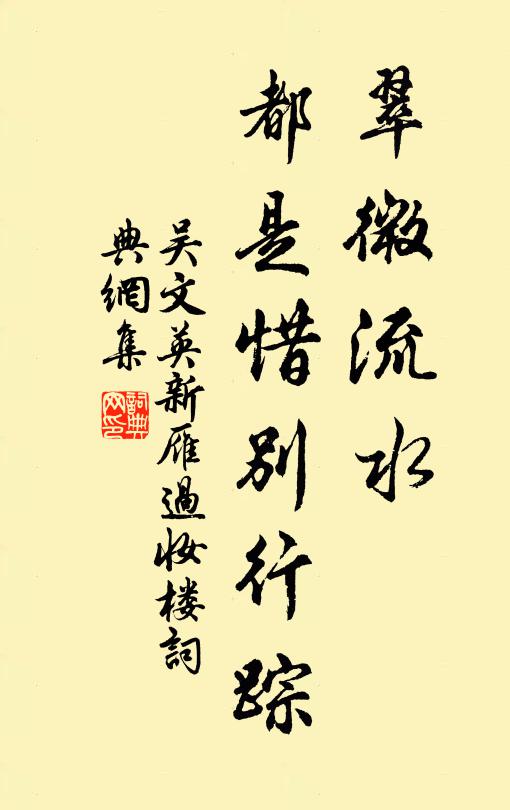 翠微流水
都是惜别行踪
吴文英新雁過妝楼詞
典網集
詞典網印